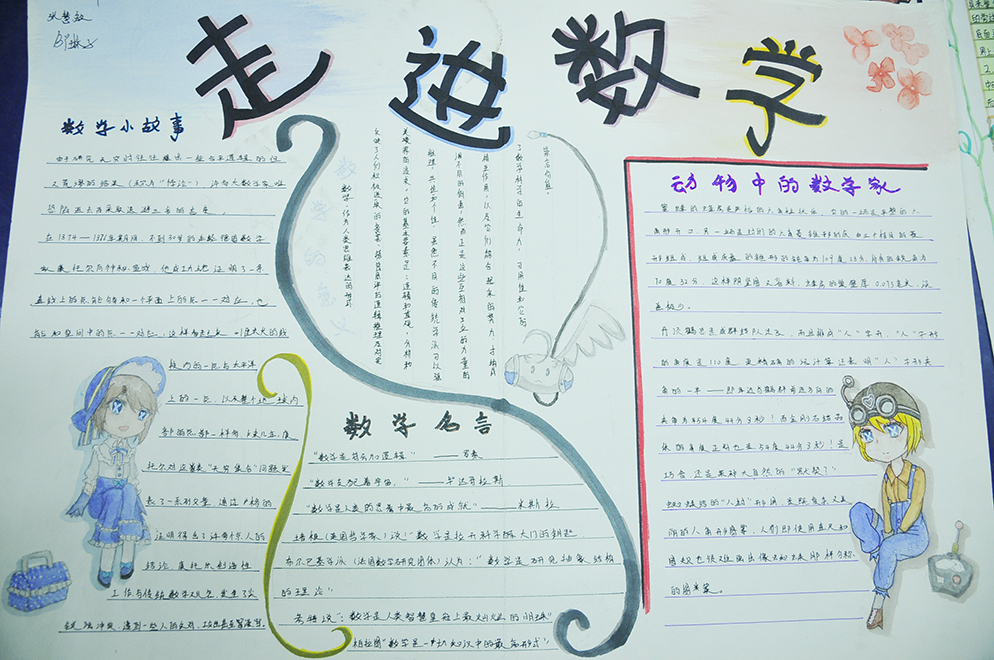 走进数学
数学小故事
由于研究无穷时往往推出一些合乎逻辑的但
又荒谬的结果(称为"悖论"),许多大数学家唯
恐陷进去而采取退避三舍的态度。
在1874—1876年期间,不到30岁的
数学
家康托尔向神秘
他
证明了一条
直线上的点能够和一个平面上的点一一对应,也
能和空间中的点一一对应,这样看起来,1厘米长的线
段内的点与太平洋
上的
点,以及整个地球内
部的点都一样多,
康
托尔对这类"无穷集合"问题发
表了一系列文章,通过严格的
证明得出了许多惊人的
结论。康托尔的创造性
工作与传统数学观念发生了尖
锐冲突,遭到一些人的反对,
数学的意义
数学,作为人类思维表达的形式
反映了人们积极进取的意志、缜密周详的逻辑推理及对完
美境界的追求。它的基本要素是:逻辑和直观、分析和
推理、共性和个性。虽然不同的传统学派可以强
调不同的侧面,然而正是这些互相对立的力量的
相互作用,以及它们综合起来的努力,才构成
了数学科学的生命力、可用性和它的
崇高价值。
数学名言
"数学是符号加逻辑" ——罗素
"数学支配着宇宙。" ——毕达哥拉斯
"数学是人类的思考中最高的成就" ——米斯拉
培根(英国哲学家)说:"数学是打开科学大门的钥匙
布尔巴基学派(法国数学研究团体)认为:"数学是研究抽象结构
的理论"
考特说:"数学是人类智慧皇冠上最灿烂的明珠"
柏拉图"数学是一切知识中的最高形式"
动物中的数学家
蜜蜂的蜂房是严格的六角柱状体,它的一端是平整的六
角形开口,另一端是封闭的六角菱锥形的底,由三个相同的菱
形组成。组成底盘的菱形的钝角为109度28分,所有的锐角为
70度32分,这样既坚固又省料。蜂房的巢壁厚0.073毫米,误
差极少。
丹顶鹤总是成群结队迁飞,而且排成"人"字形。"人"字形
的角度是110度。更精确的计算还表明"人"字形夹
角的一半——即每边与鹤群前进方向的
夹角为54度44分8秒!而金刚石结晶
体的角度正好也是54度44分8秒!是
巧合还是某种大自然的"默契"?
蜘蛛结的"八卦"形网,是既复杂又美
丽的八角形几何图案,人们即使用直尺和
圆规也很难画出像蜘蛛网那样匀称
的图案。